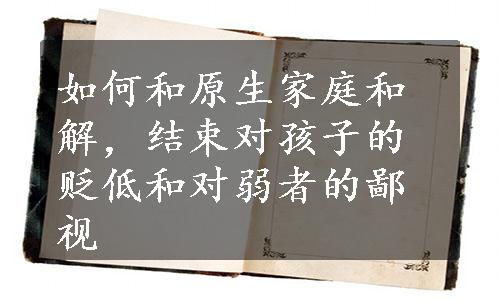 如何和原生家庭和
解，结束对孩子的
贬低和对弱者的鄙
视